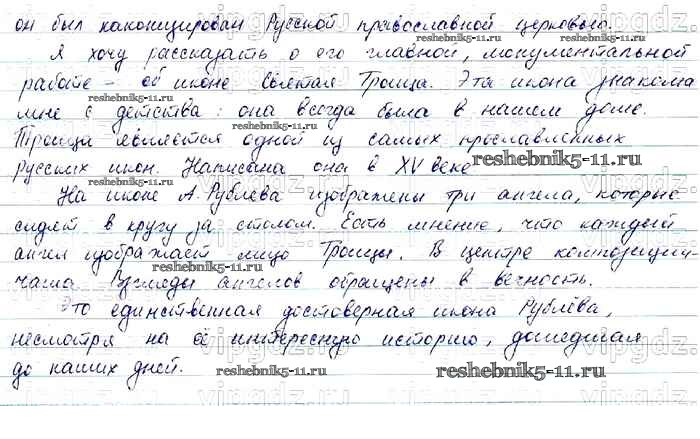 он был канонизирован Русской православной церковью.
Я хочу рассказать о его главной, монументальной
работе - об иконе Святая Троица. Эта икона знакома
мне с детства: она всегда была в нашем доме.
Троица является одной из самых прославленных
русских икон. Написана она в XV веке
На иконе А. Рублева изображены три ангела, которые
сидят в кругу за столом. Есть мнение, что каждый
ангел изображает лицо Троицы. В центре композиции-
чаша Взгляды ангелов обращены в вечность.
Это единственная достоверная икона Рублёва,
несмотря на её интересную историю, дошедшая
до наших дней.
reshebnik5-11.ru
reshebnik5-11.ru
reshebnik5-11.ru
reshebnik5-11.ru
reshebnik5-11.ru
reshebnik5-11.ru
reshebnik5-11.ru
reshebnik5-11.ru